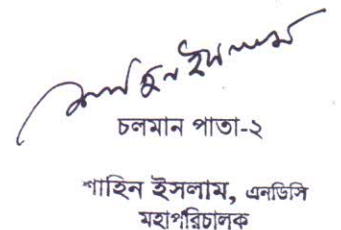 চলমান পাতা-২
শাহিন ইসলাম, এনডিসি
মহাপরিচালক